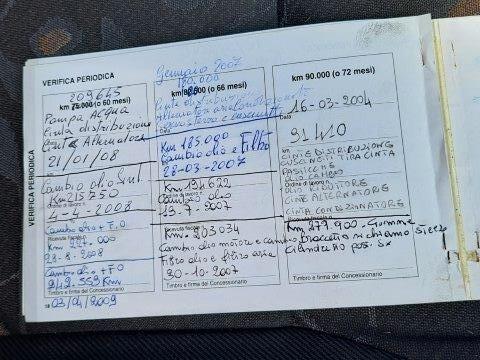 VERIFICA PERIODICA
VERIFICA PERIODICA
209645
km 75.000 (o 60 mesi)
Pompa Acqua
Cinta distribuzione
Cinta Alternatore
21/01/08
Cambio olio
Km 215750
4-4-2008
Cambio olio + F.O
Km 227.000
28-8-2008
Cambio olio + FO
242.559 Km
Timbro e firma del Concessionario
03/04/2009
Gennaio 2007
180.000
(o 66 mesi)
Km 185000
Cambio olio e Filtro
28-03-2007
Km 194622
Cambio olio
19-7-2007
Km 203034
Cambio olio motore e cambio
Filtro olio e filtro aria
30-10-2007
Timbro e firma del Concessionario
km 90.000 (o 72 mesi)
16-03-2004
Data
91410
km
CINTE DISTRIBUZIONE
CUSCINETTI TIRA CINTA
PASTICCHE
OLIO CAMBIO
OLIO
CINTE ALTERNATORE
CINTA CONDIZIONATORE
Km 279.900 - Gomme
braccetto richiamo sterzo
cilindretto pos. sx
Timbro e firma del Concessionario